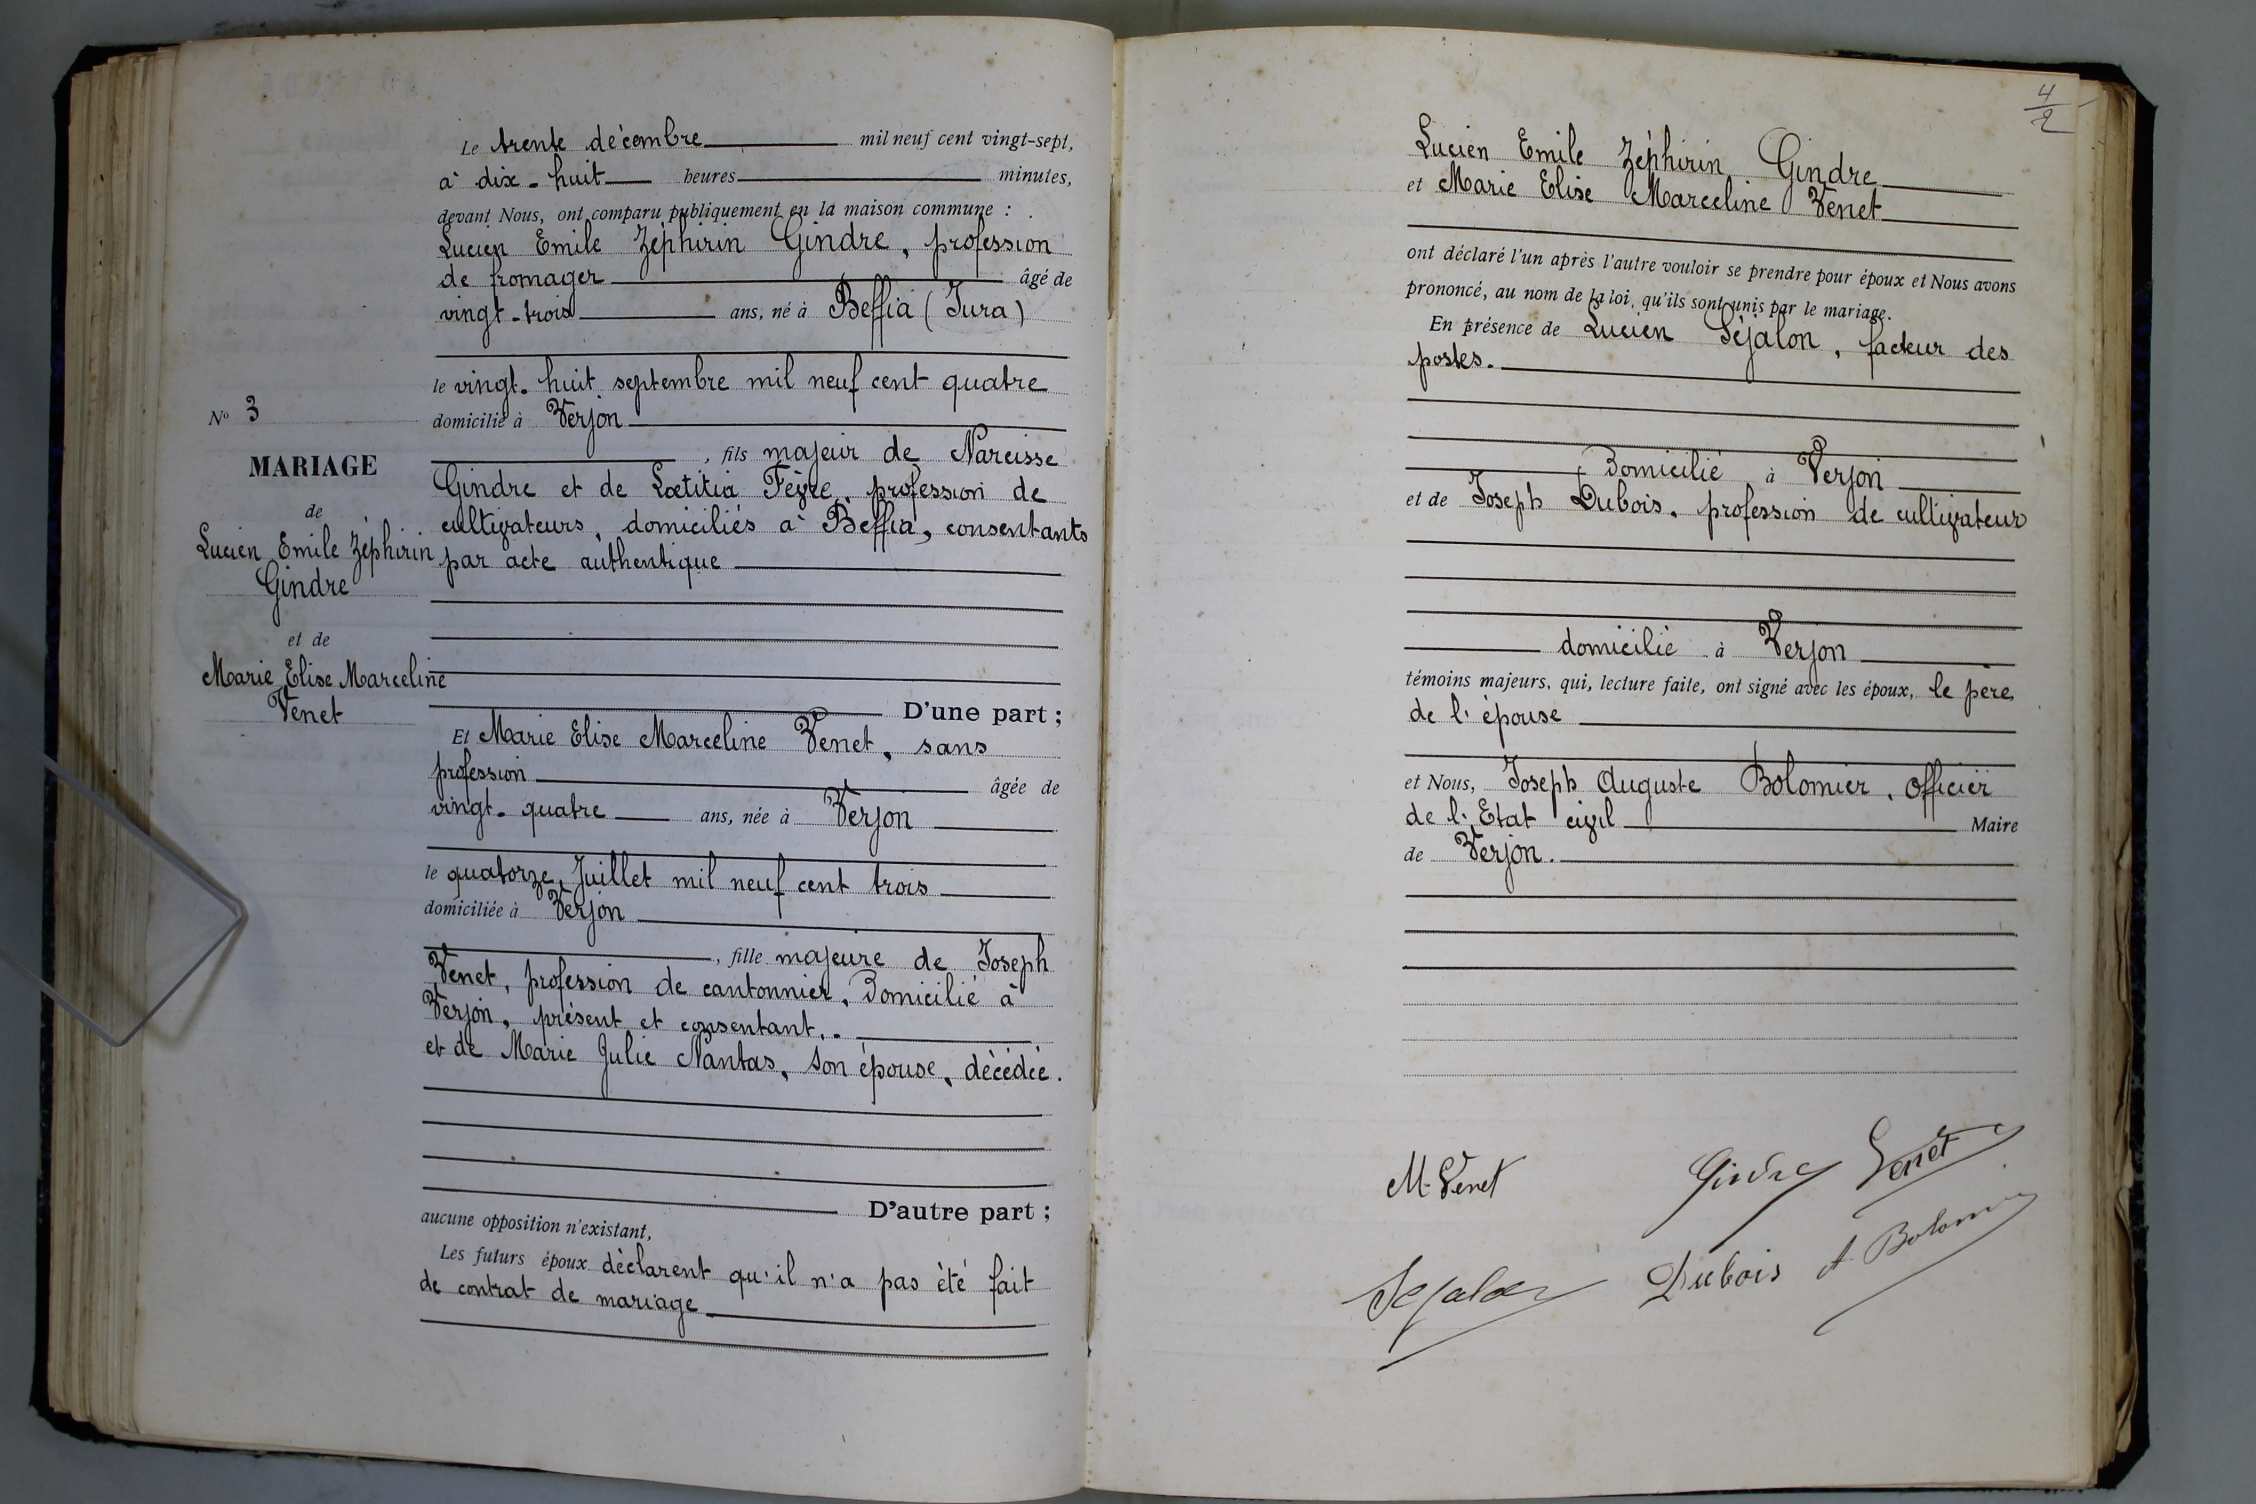 Le trente décembre mil neuf cent vingt-sept,
à dix-huit heures minutes,
devant Nous, ont comparu publiquement en la maison commune :
Lucien Emile Zéphirin Gindre, profession
de fromager âgé de
vingt-trois ans, né à Beffia (Jura)
le vingt-huit septembre mil neuf cent quatre
domicilié à Verjon
, fils majeur de Narcisse
Gindre et de Lœtitia Fèvre, profession de
cultivateurs, domiciliés à Beffia, consentants
par acte authentique
D'une part ;
Et Marie Elise Marceline Venet, sans
profession âgée de
vingt-quatre ans, née à Verjon
le quatorze Juillet mil neuf cent trois
domiciliée à Verjon
, fille majeure de Joseph
Venet, profession de cantonnier, Domicilié à
Verjon, présent et consentant.
et de Marie Julie Nantas, son épouse, décédée.
D'autre part ;
aucune opposition n'existant,
Les futurs époux déclarent qu'il n'a pas été fait
de contrat de mariage
N° 3
MARIAGE
de
Lucien Emile Zéphirin
Gindre
et de
Marie Elise Marceline
Venet
4
2
Lucien Emile Zéphirin Gindre
et Marie Elise Marceline Venet
ont déclaré l'un après l'autre vouloir se prendre pour époux et Nous avons
prononcé, au nom de la loi, qu'ils sont unis par le mariage.
En présence de Lucien Séjalon, facteur des
postes.
Domicilié à Verjon
et de Joseph Dubois, profession de cultivateur
domicilié à Verjon
témoins majeurs, qui, lecture faite, ont signé avec les époux, le père
de l'épouse
et Nous, Joseph Auguste Bolomier, officier
de l'Etat civil Maire
de Verjon.
M. Venet Gindre Venet
Sejalon Dubois A Bolomier